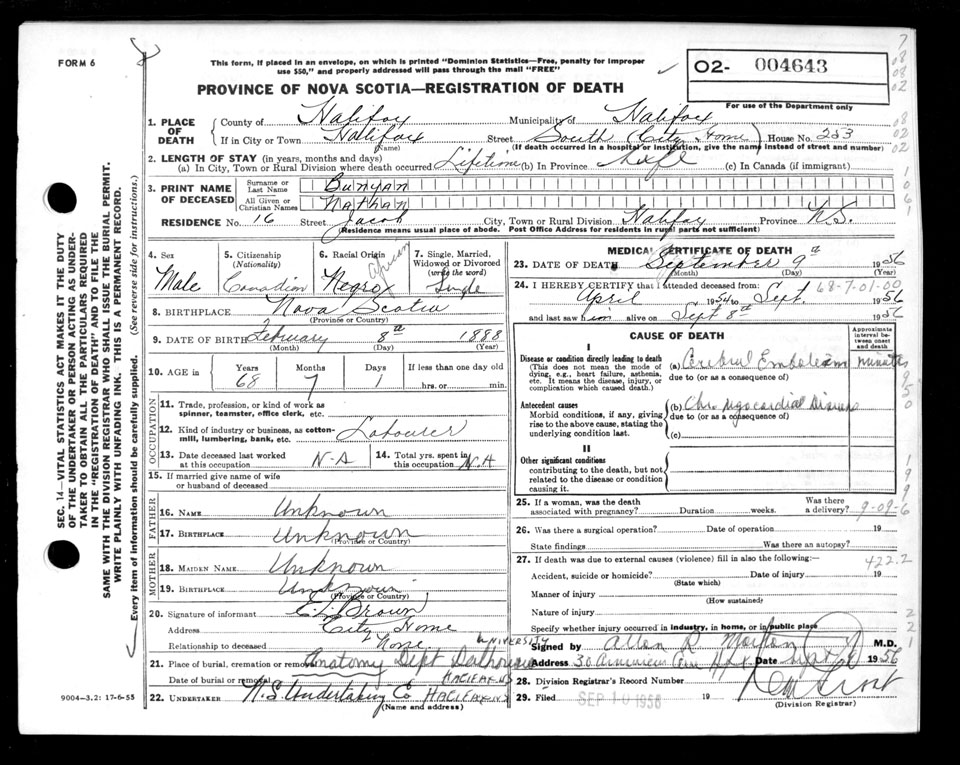 FORM 6
This form, if placed in an envelope, on which is printed "Dominion Statistics—Free, penalty for improper
use $50," and properly addressed will pass through the mail "FREE"
02- 004643
For use of the Department only
PROVINCE OF NOVA SCOTIA—REGISTRATION OF DEATH
1. PLACE OF DEATH
County of Halifax Municipality of Halifax
If in City or Town Halifax Street South (City Home) House No. 253
(Name) (If death occurred in a hospital or institution, give the name instead of street and number)
2. LENGTH OF STAY (in years, months and days)
(a) In City, Town or Rural Division where death occurred Lifetime (b) In Province Life (c) In Canada (if immigrant)
3. PRINT NAME OF DECEASED
Surname or Last Name Bunyan
All Given or Christian Names Nathan
RESIDENCE No. 16 Street Jacob City, Town or Rural Division Halifax Province N.S.
(Residence means usual place of abode. Post Office Address for residents in rural parts not sufficient)
4. Sex
Male
5. Citizenship (Nationality)
Canadian
6. Racial Origin
African
Negro
7. Single, Married, Widowed or Divorced (write the word)
Single
8. BIRTHPLACE Nova Scotia
(Province or Country)
9. DATE OF BIRTH February 8th 1888
(Month) (Day) (Year)
10. AGE in
Years Months Days If less than one day old
68 7 1 hrs. or min.
OCCUPATION
11. Trade, profession, or kind of work as spinner, teamster, office clerk, etc.
12. Kind of industry or business, as cotton-mill, lumbering, bank, etc. Labourer
13. Date deceased last worked at this occupation N-A
14. Total yrs. spent in this occupation N.A
15. If married give name of wife or husband of deceased
FATHER
16. NAME Unknown
17. BIRTHPLACE Unknown
(Province or Country)
MOTHER
18. MAIDEN NAME Unknown
19. BIRTHPLACE Unknown
(Province or Country)
20. Signature of informant Brown
Address City Home
Relationship to deceased None
21. Place of burial, cremation or removal Anatomy Dept Dalhousie UNIVERSITY
Date of burial or removal HALIFAX N.S
22. UNDERTAKER N.S. Undertaking Co HALIFAX N.S
(Name and address)
9004-3.2: 17-6-55
MEDICAL CERTIFICATE OF DEATH
23. DATE OF DEATH September 9th 1956
(Month) (Day) (Year)
24. I HEREBY CERTIFY that I attended deceased from
68-7-01-00
April 1954 to Sept. 1956
and last saw him alive on Sept 8th 1956
CAUSE OF DEATH
Approximate interval between onset and death
I
Disease or condition directly leading to death
(This does not mean the mode of dying, e.g., heart failure, asthenia, etc. It means the disease, injury, or complication which caused death.)
(a) Cerebral Embolism minutes
due to (or as a consequence of)
Antecedent causes
Morbid conditions, if any, giving rise to the above cause, stating the underlying condition last.
(b) Chr. Myocardial Disease
due to (or as a consequence of)
(c)
II
Other significant conditions
contributing to the death, but not related to the disease or condition causing it.
25. If a woman, was the death associated with pregnancy? Duration weeks. Was there a delivery?
9-09-6
26. Was there a surgical operation? Date of operation 19
State findings Was there an autopsy?
27. If death was due to external causes (violence) fill in also the following:
422.2
Accident, suicide or homicide? Date of injury 19
(State which)
Manner of injury
(How sustained)
Nature of injury
Specify whether injury occurred in industry, in home, or in public place
Signed by Allan R Morton M.D.
Address Date 1956
28. Division Registrar's Record Number
29. Filed SEP 10 1956 19
(Division Registrar)
SEC. 14—VITAL STATISTICS ACT MAKES IT THE DUTY
OF THE UNDERTAKER OR PERSON ACTING AS UNDER-
TAKER TO OBTAIN ALL THE PARTICULARS REQUIRED
IN THE "REGISTRATION OF DEATH" AND TO FILE THE
SAME WITH THE DIVISION REGISTRAR WHO SHALL ISSUE THE BURIAL PERMIT.
WRITE PLAINLY WITH UNFADING INK. THIS IS A PERMANENT RECORD.
Every item of information should be carefully supplied. (See reverse side for instructions.)